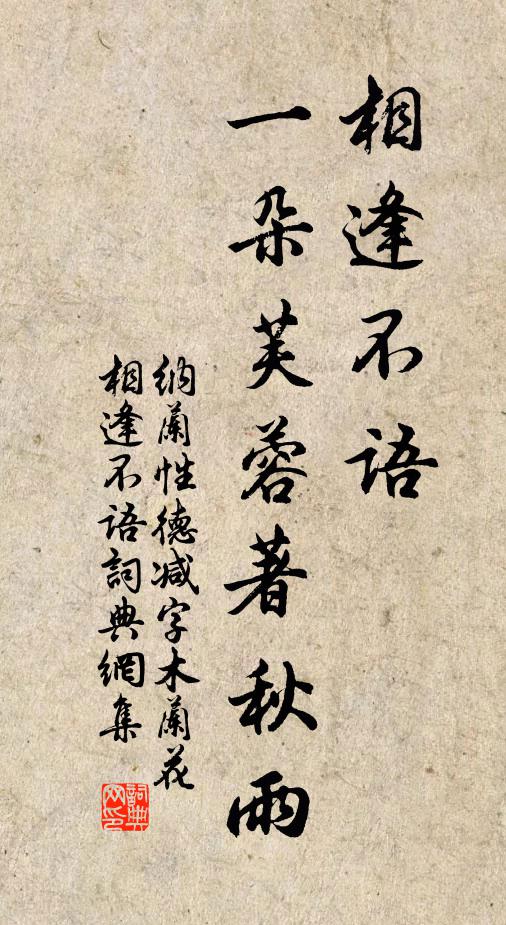 相逢不语
一朵芙蓉著秋雨
纳兰性德减字木兰花
相逢不语詞典網集
詞典
网印